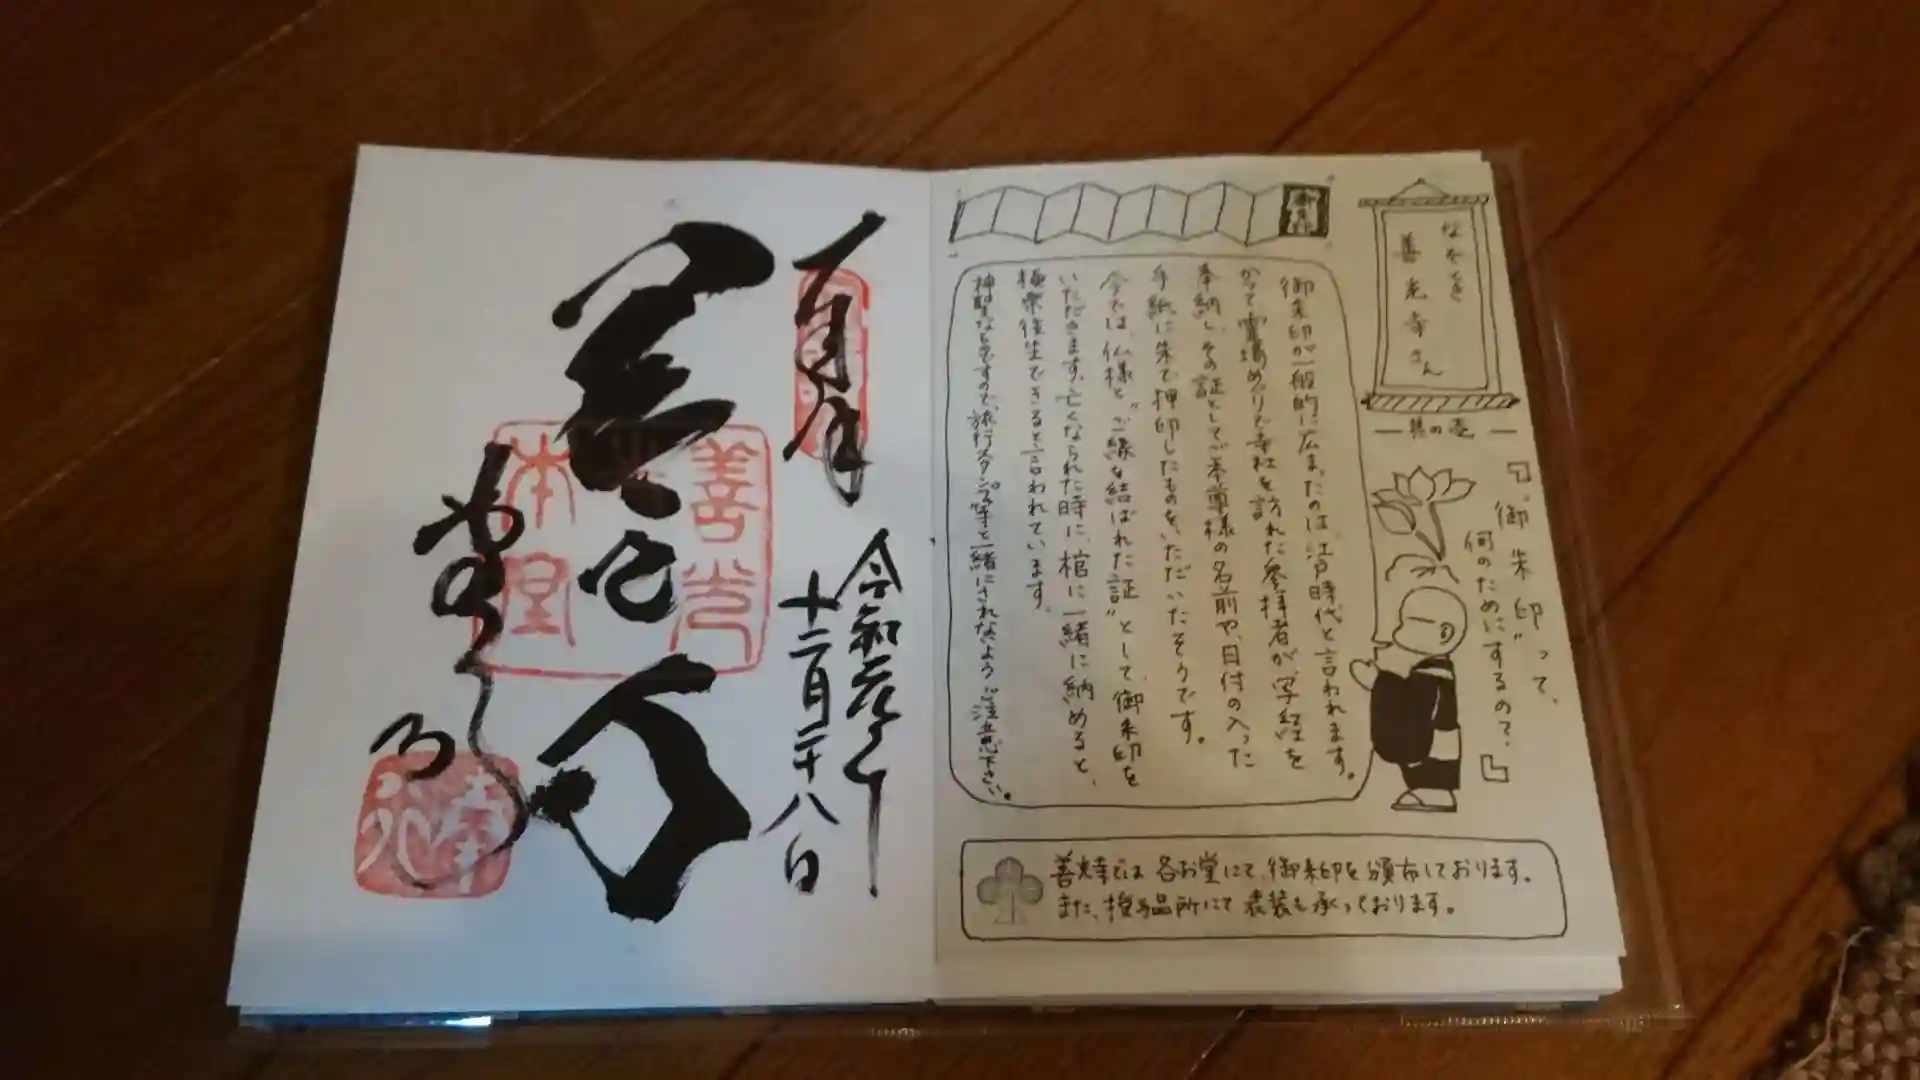 御朱印
なぜなぜ
善光寺さん
其の壱
『御朱印って、
何のために”するの?』
御朱印が一般的に広まったのは、江戸時代と言われます。
かつて、霊場めぐりで寺社を訪れた参拝者が、写経を
奉納し、その証としてご本尊様の名前や、日付の入った
手紙に朱で押印したものをいただいたそうです。
今では、仏様と“ご縁を結ばれた証”として、御朱印を
いただきます。亡くなられた時に、棺に一緒に納めると、
極楽往生できると言われています。
神聖なものですので、旅行スタンプ等と一緒にされないようご注意下さい。
善光寺では各お堂にて、御朱印を頒布しております。
また、授与品所にて表装も承っております。
令和元年
十二月二十八日
善光
本堂